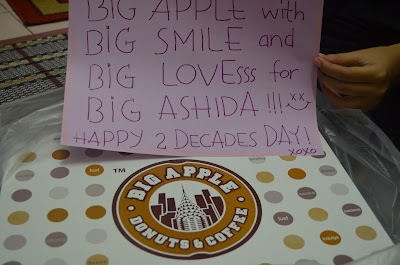 BiG APPLE with
BiG SMILE and
BiG LOVEsss for
BiG ASHIDA !!!
HAPPY 2 DECADES DAY!
xoxo
TM
BIG APPLE
DONUTS & COFFEE